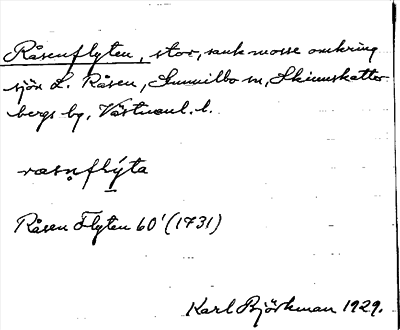 Råsenflyten, stor, sank mosse omkring
sjön L. Råsen, Gunnilbo sn, Skinnskatte-
bergs bg, Västmanl. l.
råsṇflýta
Råsen Flyten 60' (1731)
Karl Björkman 1929.